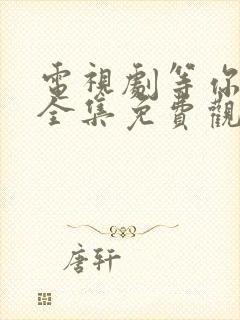 電視劇等你
全集免費觀
唐轩